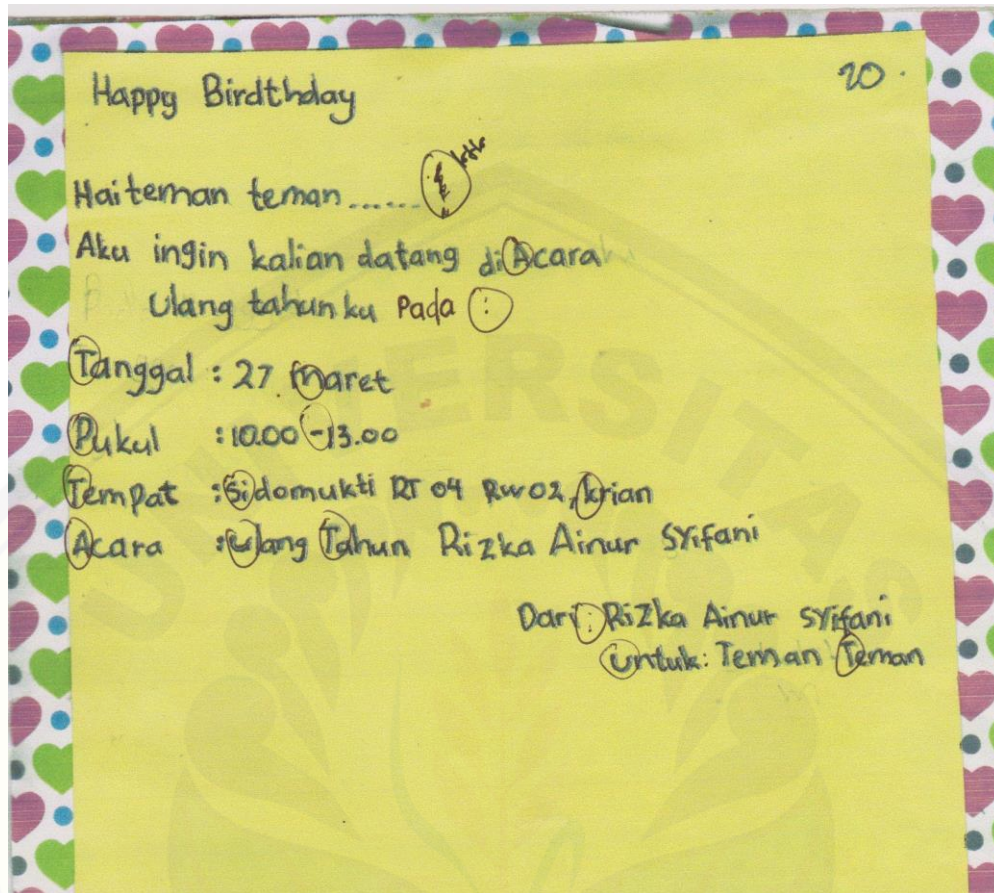 Happy Birdthday
20.
Hai teman teman......
Aku ingin kalian datang di Acara
Ulang tahun ku Pada :
Tanggal : 27 maret
Pukul : 10.00 - 13.00
Tempat : Sidomukti RT 04 RW02, krian
Acara : ulang Tahun Rizka Ainur SYifani
Dari : RiZka Ainur SYifani
untuk : Teman Teman
UNIVERSITAS